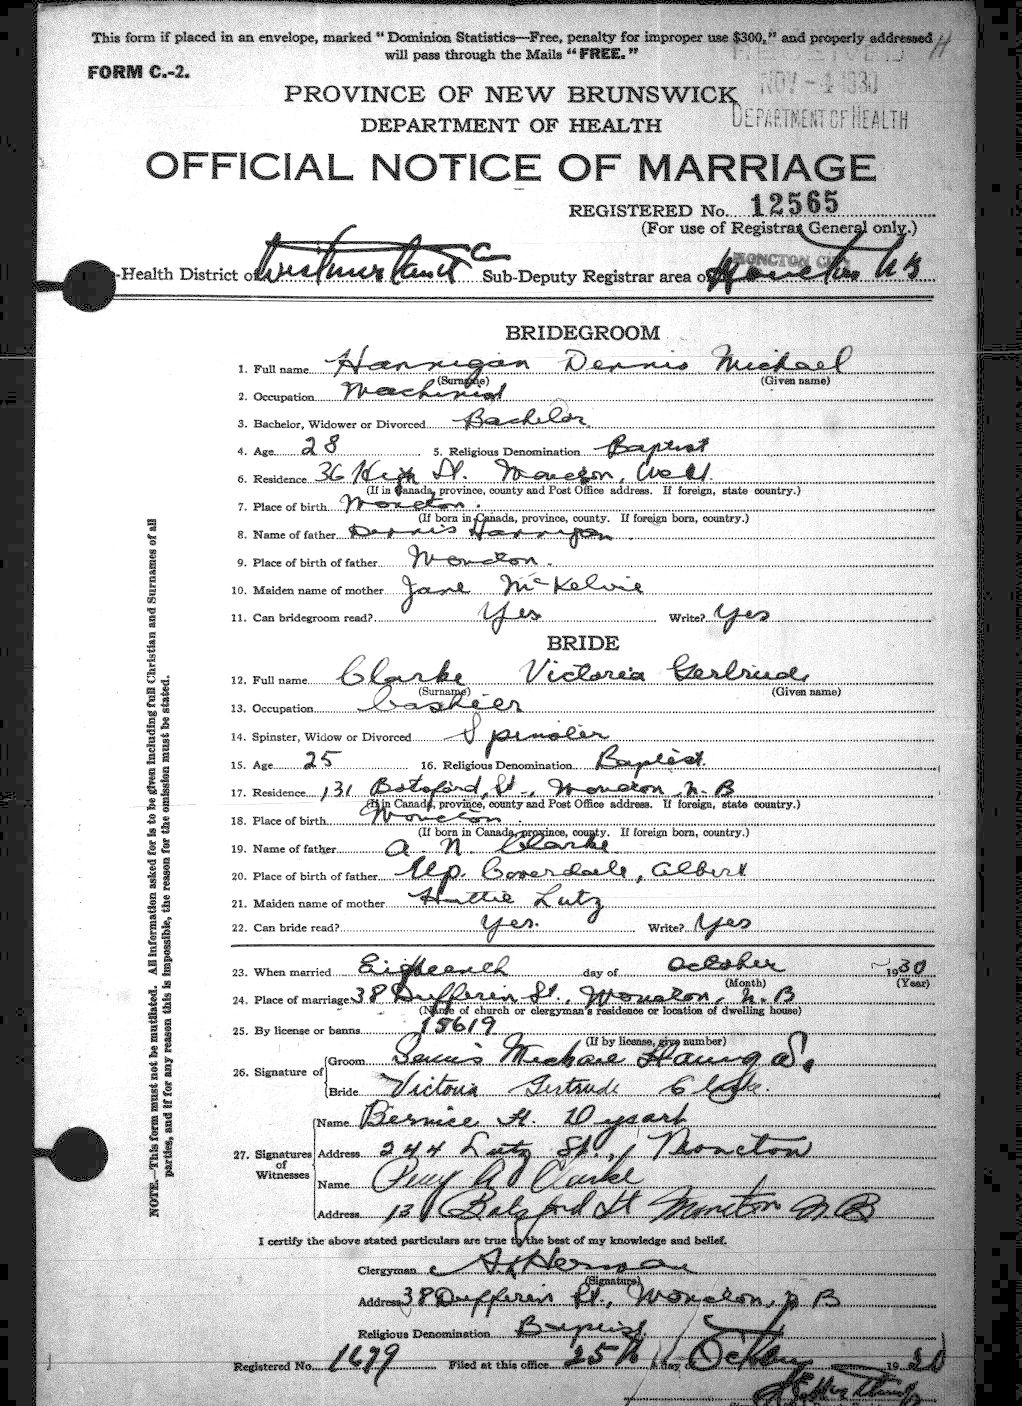 This form if placed in an envelope, marked "Dominion Statistics—Free, penalty for improper use $300," and properly addressed H
will pass through the Mails "FREE."
FORM C.-2.
NOV -4 1930
DEPARTMENT OF HEALTH
PROVINCE OF NEW BRUNSWICK
DEPARTMENT OF HEALTH
OFFICIAL NOTICE OF MARRIAGE
REGISTERED No. 12565
(For use of Registrar General only.)
-Health District of Westmorland Co Sub-Deputy Registrar area of MONCTON CITY Moncton N B
BRIDEGROOM
1. Full name Hannigan Dennis Michael
(Surname) (Given name)
2. Occupation Machinist
3. Bachelor, Widower or Divorced Bachelor
4. Age 28 5. Religious Denomination Baptist
6. Residence 36 High St. Moncton, West.
(If in Canada, province, county and Post Office address. If foreign, state country.)
7. Place of birth Moncton.
(If born in Canada, province, county. If foreign born, country.)
8. Name of father Dennis Hannigan
9. Place of birth of father Moncton.
10. Maiden name of mother Jane McKelvie
11. Can bridegroom read? Yes Write? Yes
BRIDE
12. Full name Clarke Victoria Gertrude
(Surname) (Given name)
13. Occupation Cashier
14. Spinster, Widow or Divorced Spinster
15. Age 25 16. Religious Denomination Baptist.
17. Residence 131 Botsford St., Moncton N. B
(If in Canada, province, county and Post Office address. If foreign, state country.)
18. Place of birth Moncton.
(If born in Canada, province, county. If foreign born, country.)
19. Name of father A. N. Clarke
20. Place of birth of father Up. Coverdale, Albert
21. Maiden name of mother Hattie Lutz
22. Can bride read? Yes. Write? Yes
23. When married Eighteenth day of October 1930
(Month) (Year)
24. Place of marriage 38 Dufferin St., Moncton, N. B
(Name of church or clergyman's residence or location of dwelling house)
25. By license or banns 15619
(If by license, give number)
26. Signature of
Groom Dennis Michael
Bride Victoria Gertrude Clarke.
27. Signatures of Witnesses
Name Bernice H. Dysart
Address 244 Lutz St., Moncton
Name Percy A Clarke
Address 131 Botsford St Moncton N B
I certify the above stated particulars are true to the best of my knowledge and belief.
Clergyman Herman
(Signature)
Address 38 Dufferin St., Moncton, N B
Religious Denomination Baptist
Registered No. 1679 Filed at this office 25th day of October 1930
NOTE.—This form must not be mutilated. All information asked for is to be given including full Christian and Surnames of all
parties, and if for any reason this is impossible, the reason for the omission must be stated.